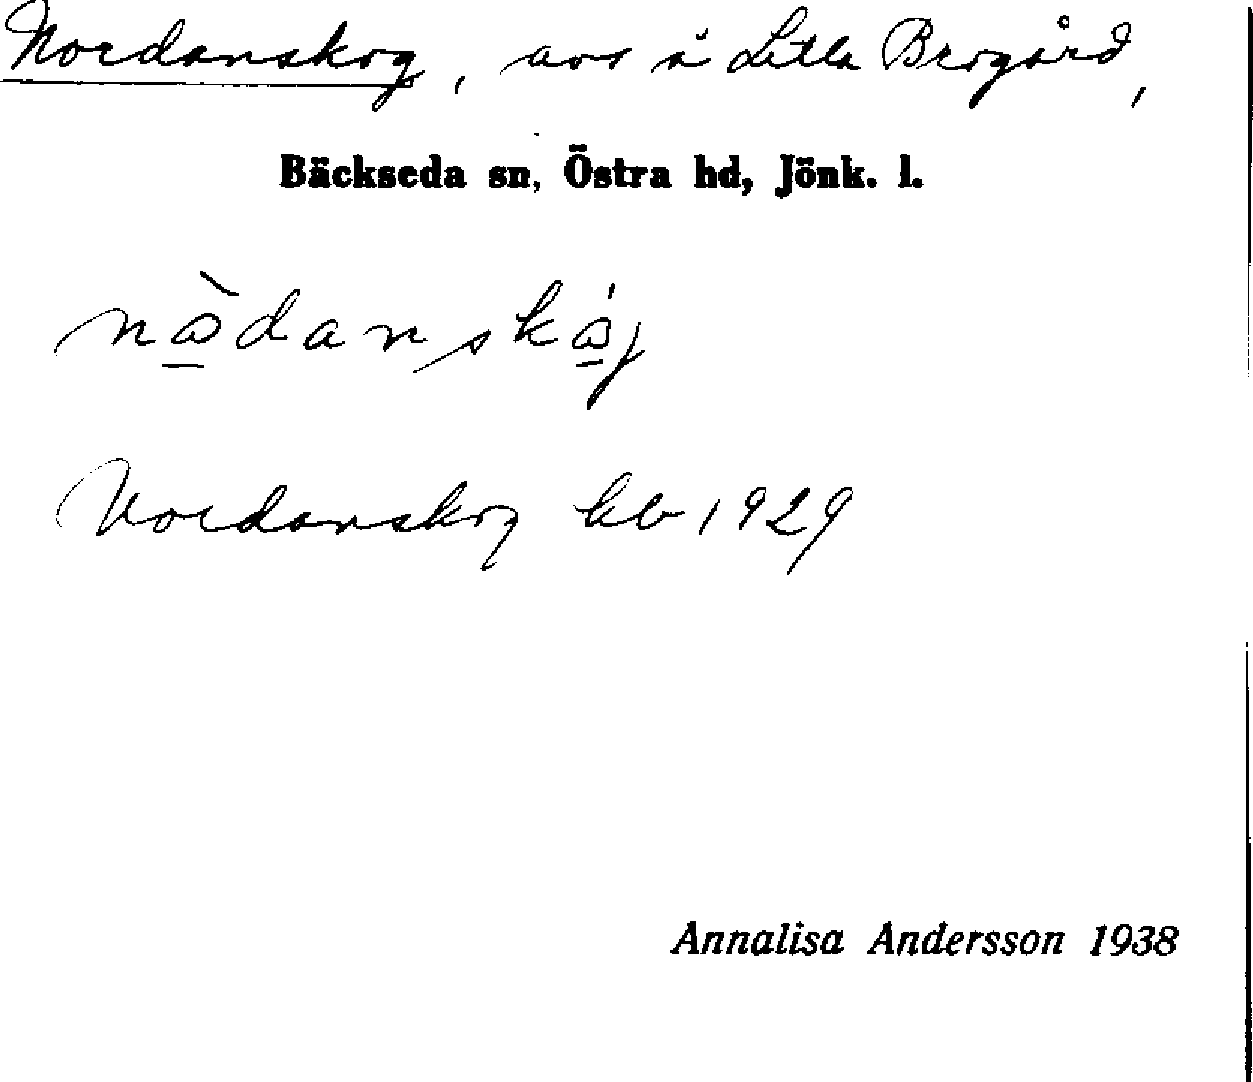 Nordanskog, avs å Lilla Bergård,
Bäckseda sn, Östra hd, Jönk. l.
nå̀danskǻj
Nordanskog kb 1929
Annalisa Andersson 1938